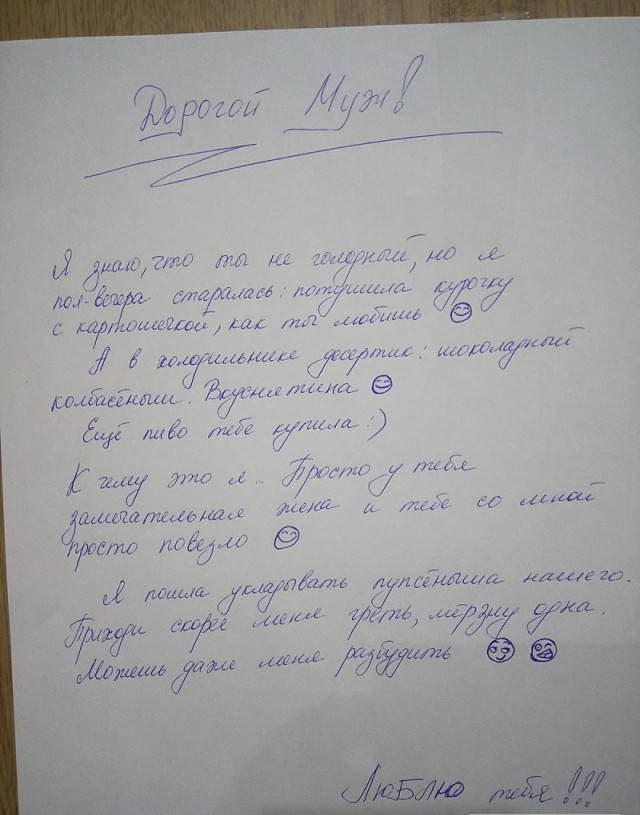 Дорогой Муж!
Я знаю, что ты не голодный, но я
пол-вечера старалась: потушила курочку
с картошечкой, как ты любишь 😊
А в холодильнике десертик: шоколадный
колбасёныш. Вкуснятина 😊
Ещё пиво тебе купила :)
К чему это я... Просто у тебя
замечательная жена и тебе со мной
просто повезло 😊
Я пошла укладывать пупсёныша нашего.
Приходи скорее меня греть, мёрзну одна.
Можешь даже меня разбудить 😏 😜
Люблю тебя!!!